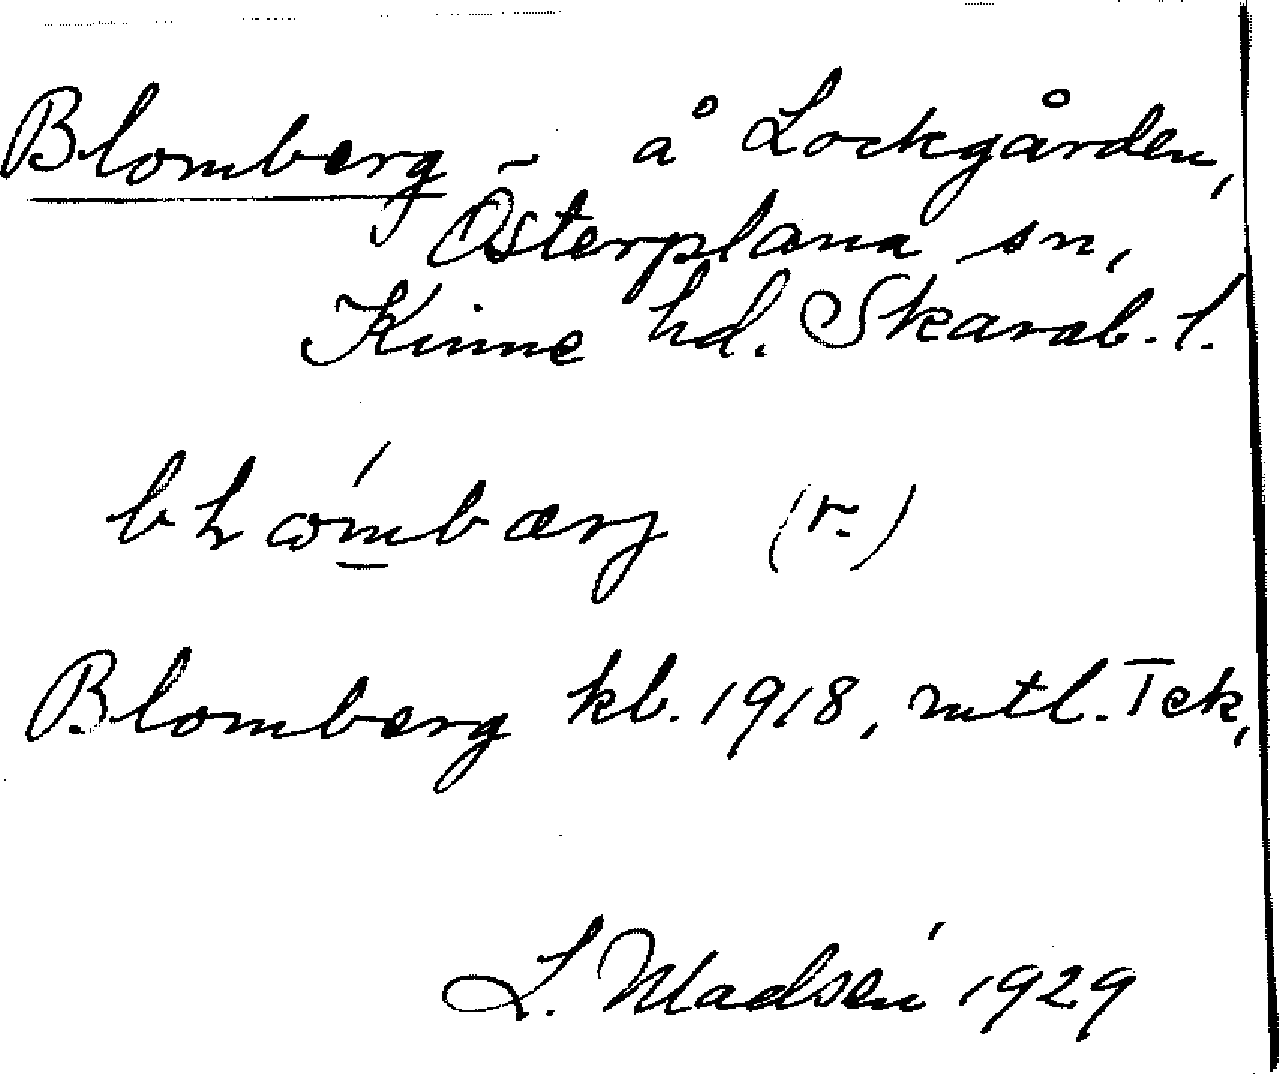 Blomberg - å Lockgården,
Österplana sn,
Kinne hd. Skarab. l.
(r.)
Blomberg kb. 1918, mtl. Tek,
L. Madsén 1929